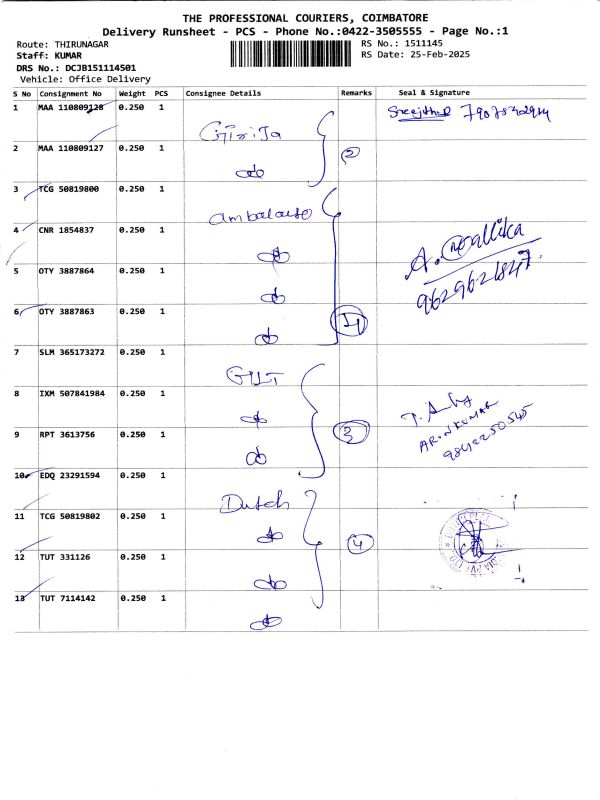 THE PROFESSIONAL COURIERS, COIMBATORE
Delivery Runsheet - PCS - Phone No.:0422-3505555 - Page No.:1
Route: THIRUNAGAR
RS No.: 1511145
Staff: KUMAR
RS Date: 25-Feb-2025
DRS No.: DCJB151114501
Vehicle: Office Delivery
S No Consignment No Weight PCS Consignee Details Remarks Seal & Signature
1 MAA 110809128 0.250 1
Girija
2 MAA 110809127 0.250 1 2
3 TCG 50819800 0.250 1
4 CNR 1854837 0.250 1
A. Mallika
9629621847
5 OTY 3887864 0.250 1
6 OTY 3887863 0.250 1
7 SLM 365173272 0.250 1
8 IXM 507841984 0.250 1
ARUNKUMAR
9 RPT 3613756 0.250 1 3
9842250545
10 EDQ 23291594 0.250 1
Dutch
11 TCG 50819802 0.250 1
4
12 TUT 331126 0.250 1
13 TUT 7114142 0.250 1